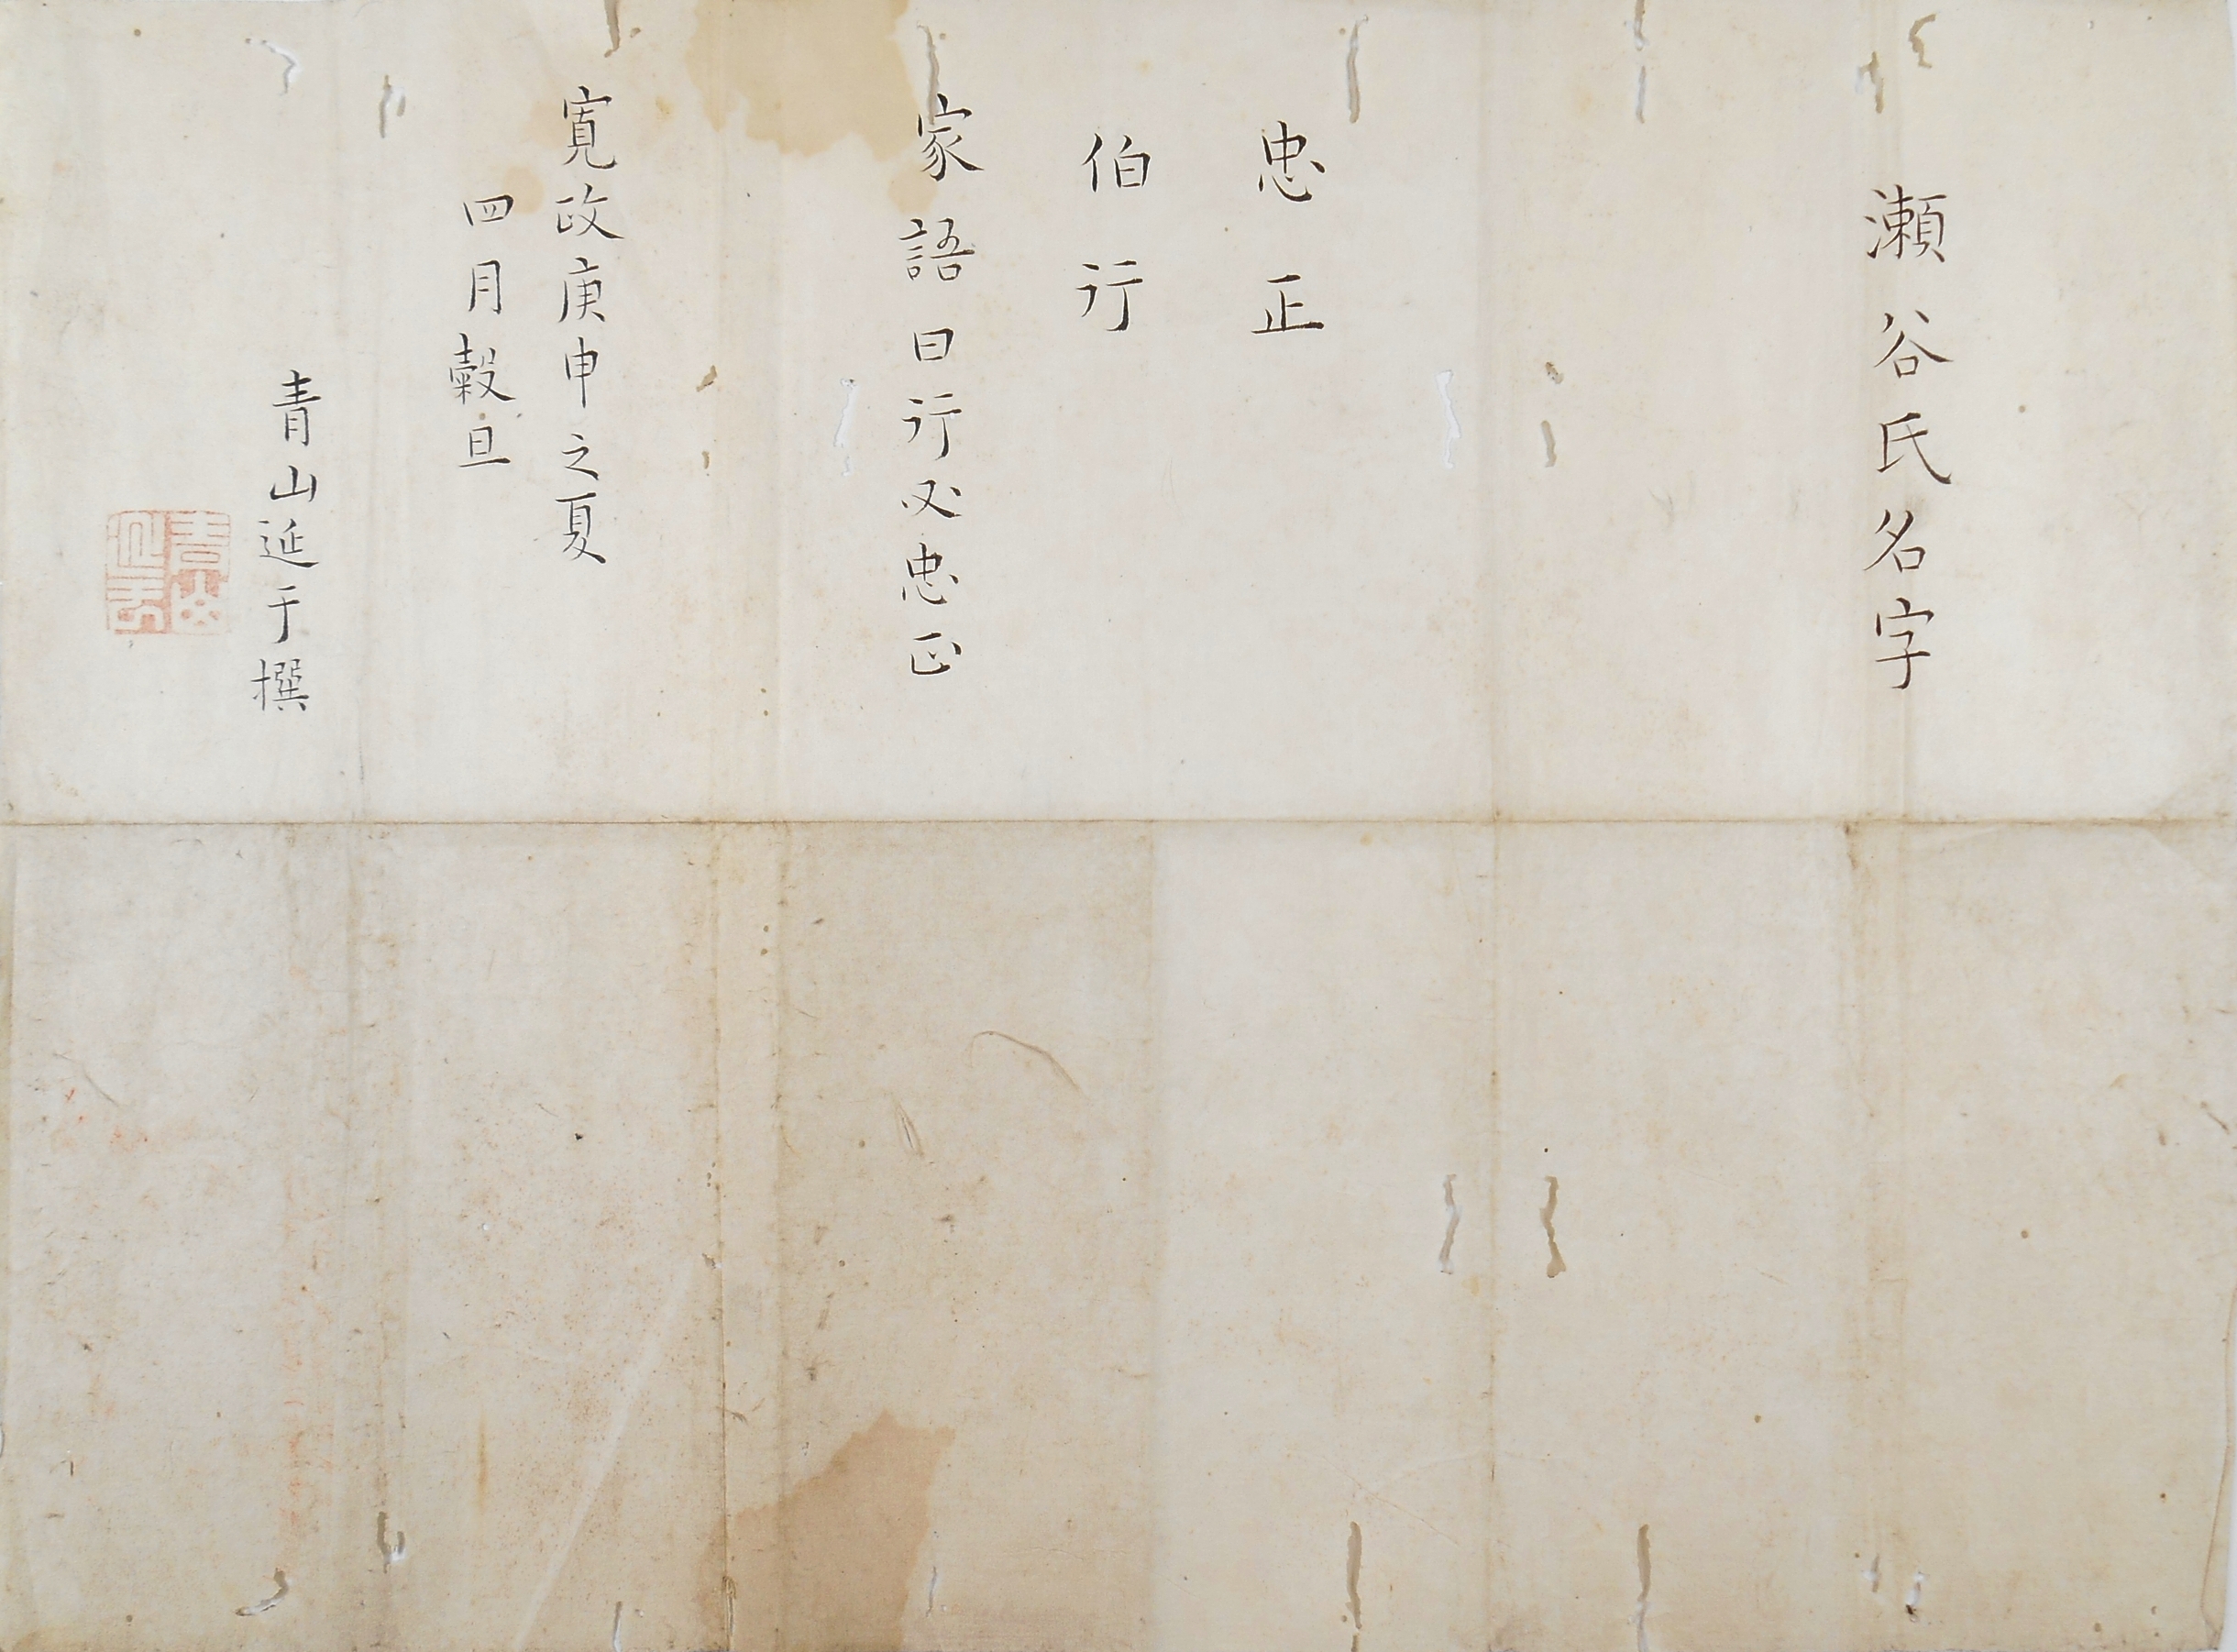 瀬谷氏名字
忠正
伯行
家語曰行必忠正
寛政庚申之夏
四月穀旦
青山延于撰
青山
延于